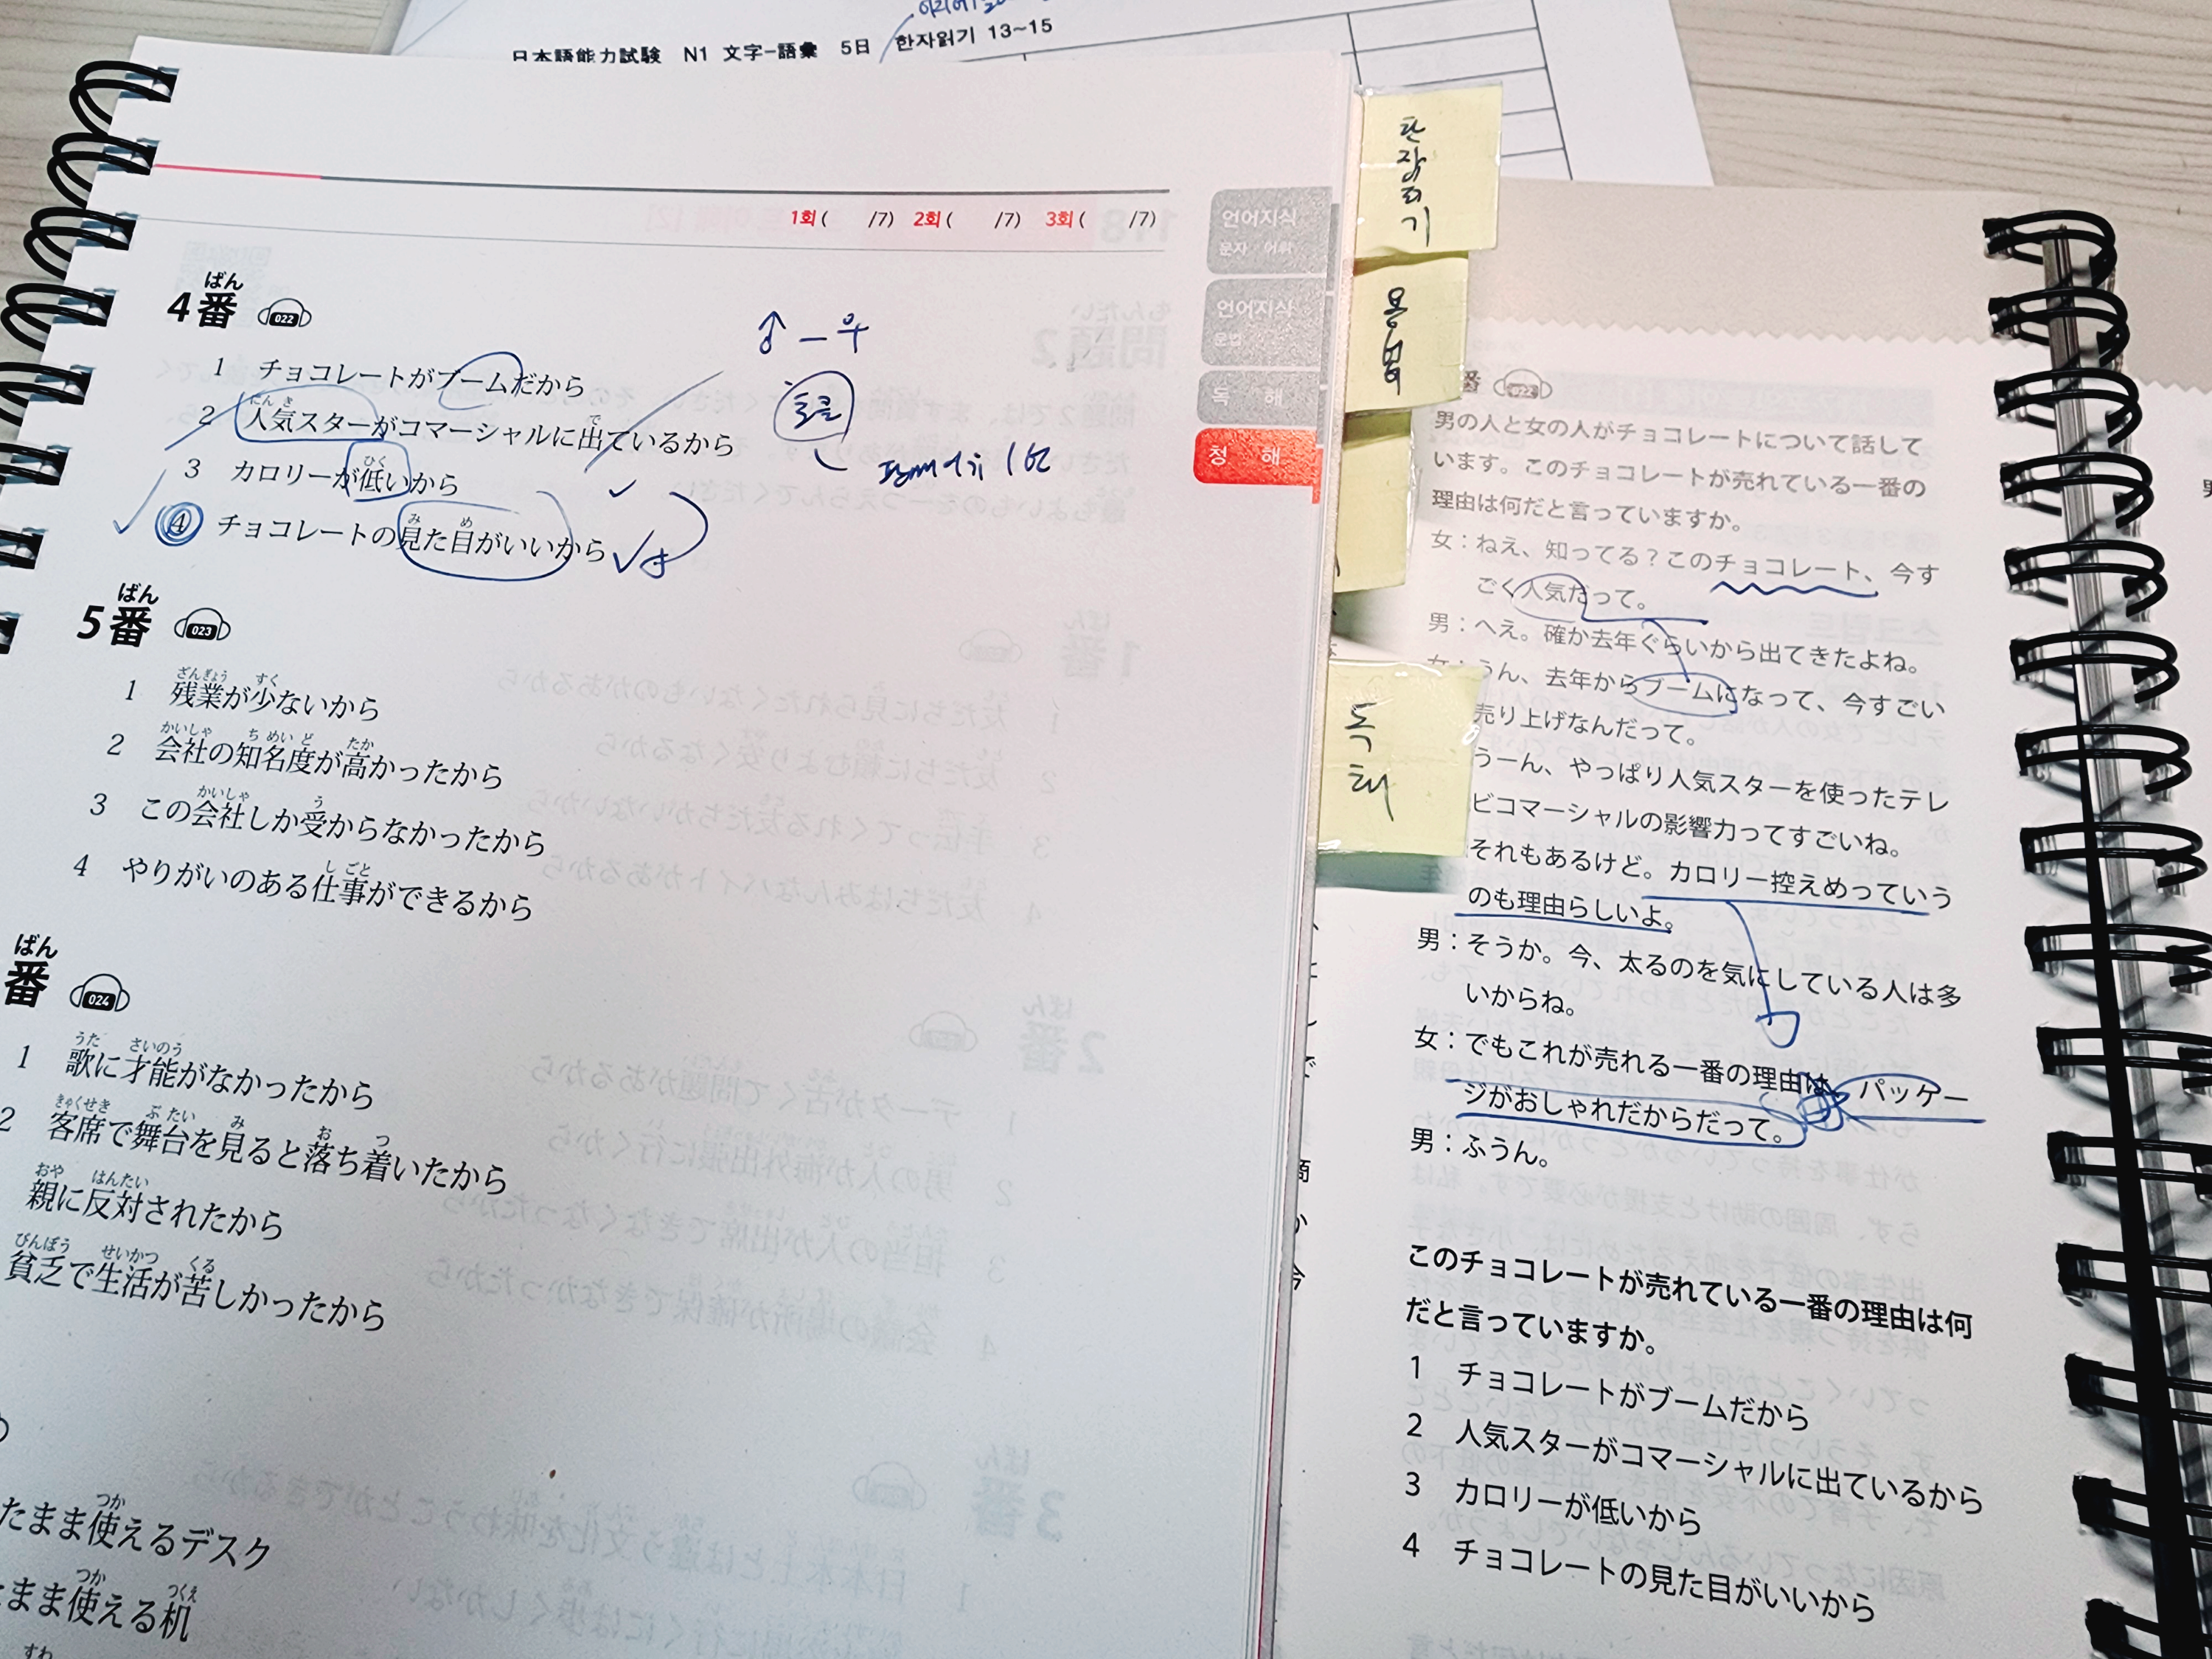 日本語能力試験 N1 文字-語彙 5日 한자읽기 13~15
1회 ( /7) 2회 ( /7) 3회 ( /7)
언어지식
문자 어휘
언어지식
문법
독 해
청 해
한자읽기
문법
독해
ばん
4番 022
1 チョコレートがブームだから
にんき で
2 人気スターがコマーシャルに出ているから
ひく
3 カロリーが低いから
み め
4 チョコレートの見た目がいいから
♂ー우
초콜
판매이유 1번
ばん
5番 023
ざんぎょう すく
1 残業が少ないから
かいしゃ ちめいど たか
2 会社の知名度が高かったから
かいしゃ う
3 この会社しか受からなかったから
しごと
4 やりがいのある仕事ができるから
ばん
番 024
うた さいのう
1 歌に才能がなかったから
きゃくせき ぶたい み お つ
2 客席で舞台を見ると落ち着いたから
おや はんたい
親に反対されたから
びんぼう せいかつ くる
貧乏で生活が苦しかったから
つか
たまま使えるデスク
つか つくえ
まま使える机
すわ
番 022
男の人と女の人がチョコレートについて話して
います。このチョコレートが売れている一番の
理由は何だと言っていますか。
女：ねえ、知ってる？このチョコレート、今す
ごく人気だって。
男：へえ。確か去年ぐらいから出てきたよね。
女：うん、去年からブームになって、今すごい
売り上げなんだって。
うーん、やっぱり人気スターを使ったテレ
ビコマーシャルの影響力ってすごいね。
それもあるけど。カロリー控えめっていう
のも理由らしいよ。
男：そうか。今、太るのを気にしている人は多
いからね。
女：でもこれが売れる一番の理由は、パッケー
ジがおしゃれだからだって。
男：ふうん。
このチョコレートが売れている一番の理由は何
だと言っていますか。
1 チョコレートがブームだから
2 人気スターがコマーシャルに出ているから
3 カロリーが低いから
4 チョコレートの見た目がいいから